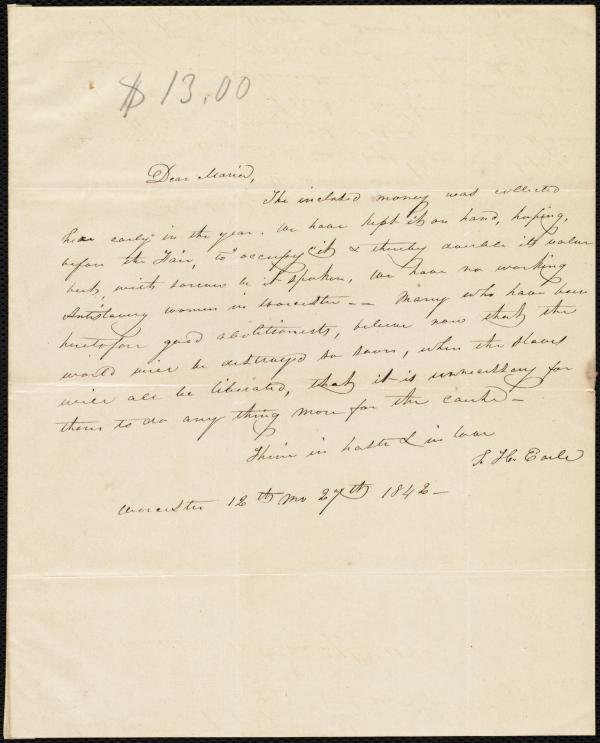 $13.00
Dear Maria,
The included money was collected
here early in the year. We have kept it on hand, hoping,
before the Fair, to "occupy" it & thereby double its value
but, with sorrow be it spoken, we have no working
Antislavery women in Worcester -- Many who have been
heretofore good abolitionists, believe now that the
world will be destroyed so soon, when the slaves
will all be liberated, that it is unnecessary for
them to do any thing more for the cause -
Thine in haste & in love
S. H. Earle
Worcester 12th mo 27th 1842 -